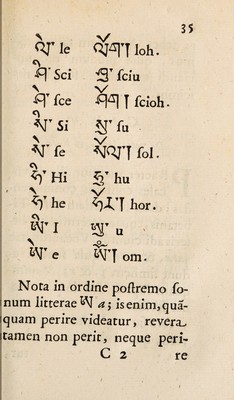 35
ལེ་ le ལོག། loh.
ཤི་ Sci ཤུ་ ſciu
ཤེ་ ſce ཤོག། ſcioh.
སི་ Si སུ་ ſu
སེ་ ſe སོལ། ſol.
ཧི་ Hi ཧུ་ hu
ཧེ་ he ཧོར། hor.
ཨི་ I ཨུ་ u
ཨེ་ e ཨོཾ། om.
Nota in ordine poſtremo ſo-
num litterae ཨ a; is enim, quā-
quam perire videatur, revera
tamen non perit, neque peri-
C 2 re